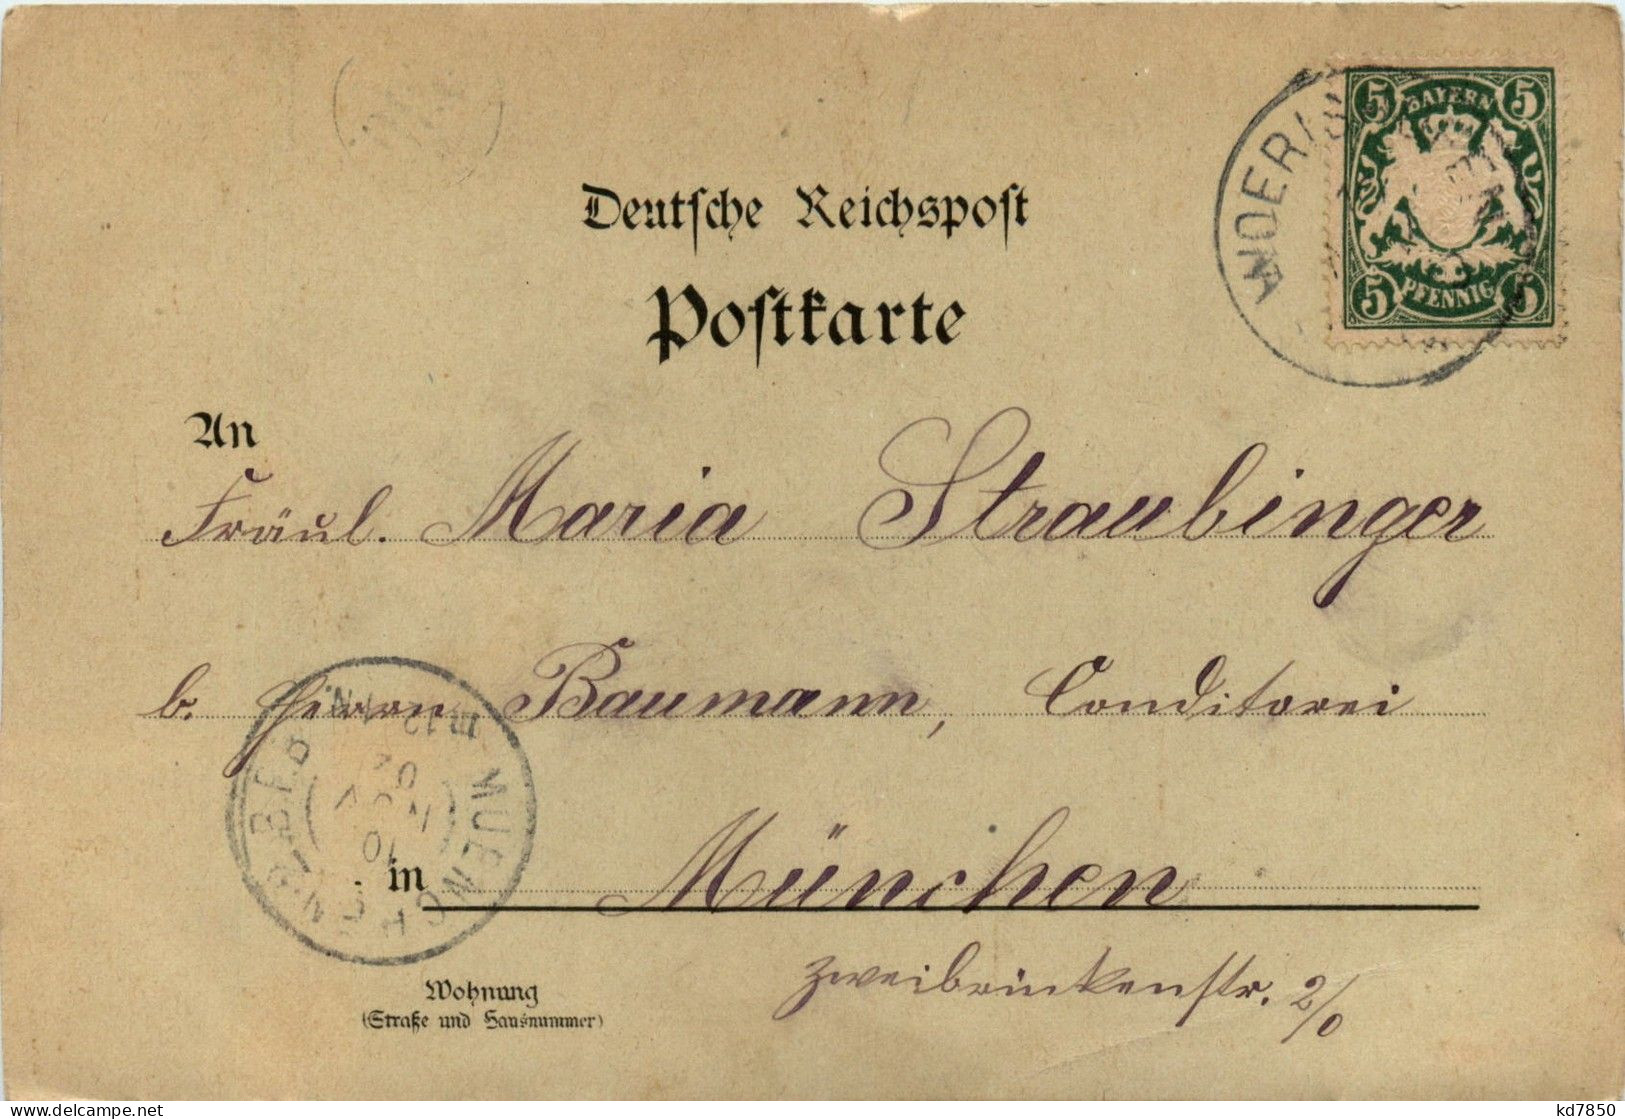 BAYERN
5 5
5 5
PFENNIG
Deutsche Reichspost
Postkarte
An
Fräul. Maria Straubinger
b. Herrn Baumann, Conditorei
in München
Zweibrückenstr. 2/0
Wohnung
(Straße und Hausnummer)
MUENCHEN
NOV
delcampe.net
kd7850